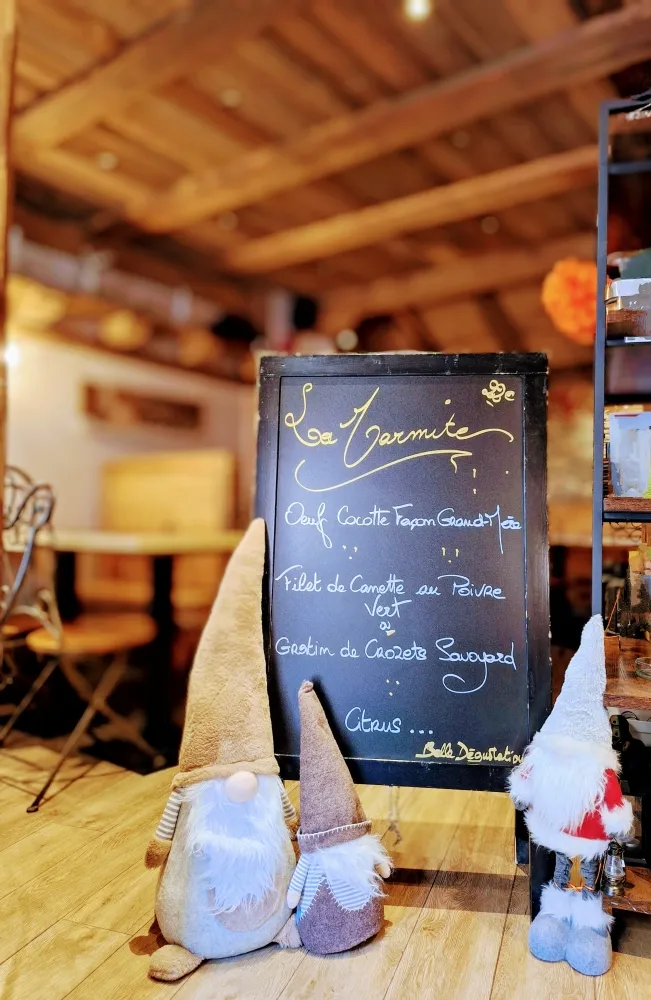 La Marmite
Oeuf Cocotte Façon Grand-Mère
Filet de Canette au Poivre
Vert
ou
Gratin de Crozets Savoyard
Citrus ...
Belle Dégustation